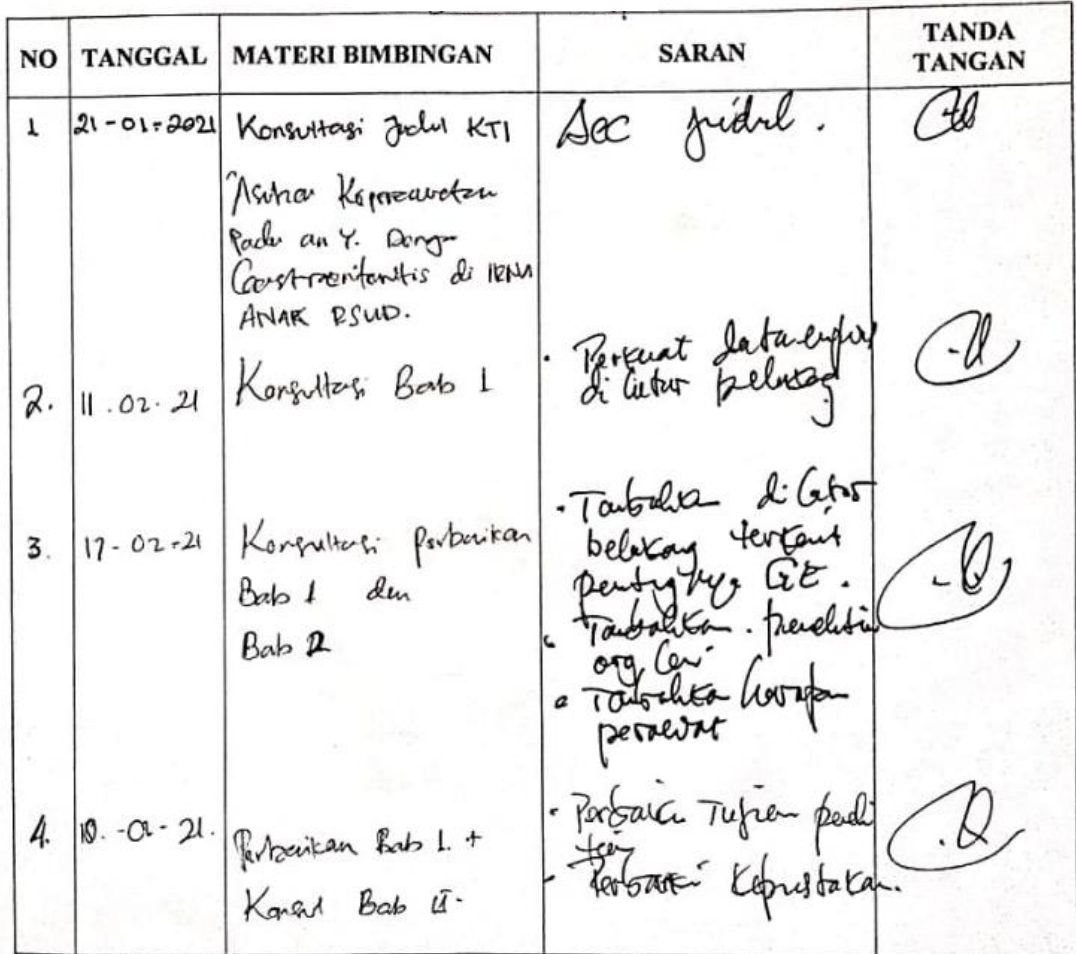 NO TANGGAL MATERI BIMBINGAN SARAN TANDA TANGAN
1 21-01-2021 Konsultasi Judul KTI Acc judul.
Asuhan Keperawatan
Pada an Y. Dengan
Gastroenteritis di IRNA
ANAK RSUD.
2. 11.02.21 Konsultasi Bab 1
. Perkuat data
di latar belakang
3. 17-02-21 Konsultasi perbaikan
Bab 1 dan
Bab 2
. Tambahkan di latar
belakang terkait
pentingnya GE.
. Tambahkan penelitian
org lain
. Tambahkan harapan
perawat
4. -21. Perbaikan Bab 1. +
Konsul Bab II.
. Perbaiki Tujuan peneli
tian
- Perbaiki Kepustakaan.